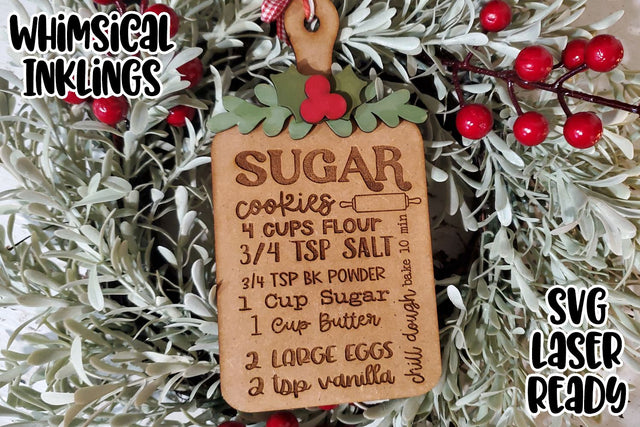 Whimsical
Inklings
SUGAR
cookies
4 CUPS FLOUR
3/4 TSP SALT
3/4 TSP BK POWDER
1 Cup Sugar
1 Cup Butter
2 LARGE EGGS
2 tsp vanilla
chill dough bake 10 min
SVG
LASER
READY